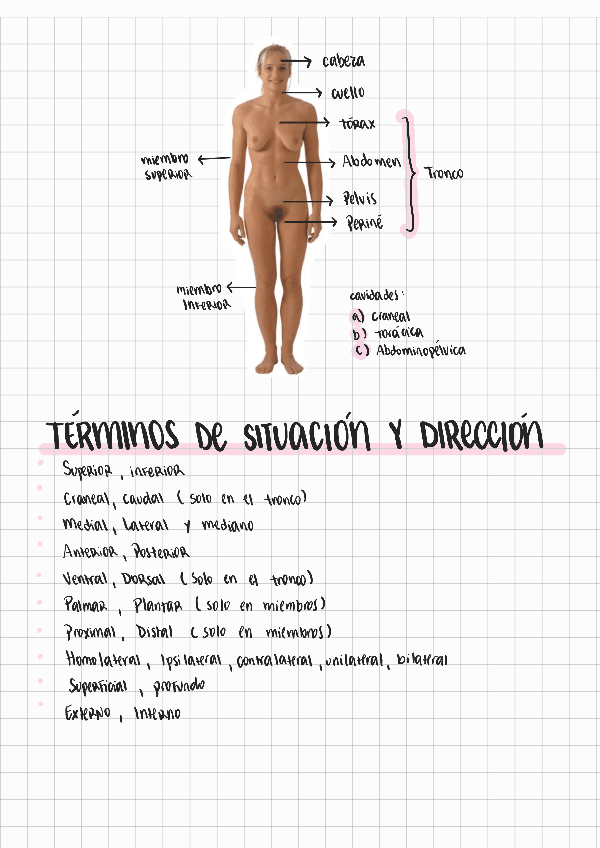 cabeza
cuello
tórax
Abdomen
Tronco
miembro
superior
Pelvis
Periné
miembro
inferior
cavidades:
a) craneal
b) torácica
c) Abdominopélvica
TÉRMINOS DE SITUACIÓN Y DIRECCIÓN
Superior, inferior
Craneal, caudal (solo en el tronco)
Medial, Lateral y mediano
Anterior, Posterior
Ventral, Dorsal (solo en el tronco)
Palmar, Plantar (solo en miembros)
Proximal, Distal (solo en miembros)
Homolateral, Ipsilateral, contralateral, unilateral, bilateral
Superficial, profundo
Externo, Interno